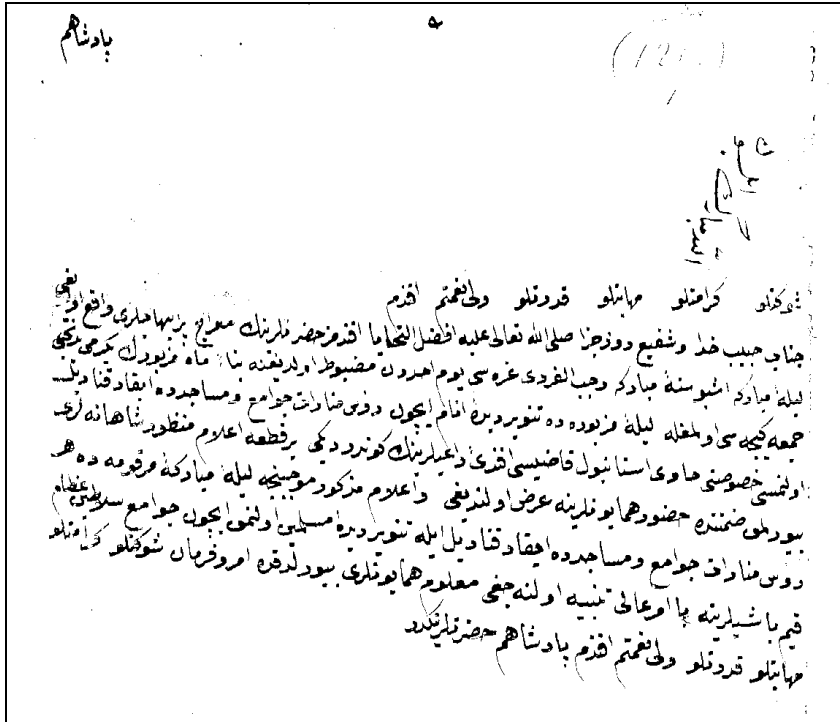 پادشاهم
شوكتلو كرامتلو مهابتلو قدرتلو ولی نعمتم افندم
جناب حبیب خدا و شفیع روز جزا صلی الله تعالی علیه افضل التحایا افندمز حضرتلرینك معراج واقع اولدیغی
لیلهٔ مباركه اشبو سنهٔ مباركه رجب الفردی غره سی یوم احددن مضبوط اولدیغنه بناءً ماه مزبورك یكرمی یدنجی
جمعه كیجه سی اولمغله لیلهٔ مزبوره ده تنویر دیدهٔ انام ایچون رؤس منارات جوامع و مساجدده ایقاد قنادیل
اولنمسی خصوصنی حاوی استانبول قاضیسی افندی داعیلرینك كوندردیكی بر قطعه اعلام منظور شاهانه لری
بیورلمق ضمننده حضور همایونلرینه عرض اولندیغی و اعلام مذكور موجبنجه لیلهٔ مباركهٔ مرقومه ده هر
رؤس منارات جوامع و مساجدده ایقاد قنادیل ایله تنویر دیدهٔ مسلمین اولنمق ایچون جوامع سلاطین عظام
قیم باشیلرینه با امر عالی تنبیه اولنه جغی معلوم همایونلری بیورلدقده امر و فرمان شوكتلو كرامتلو
مهابتلو قدرتلو ولی نعمتم افندم پادشاهم حضرتلرینكدر